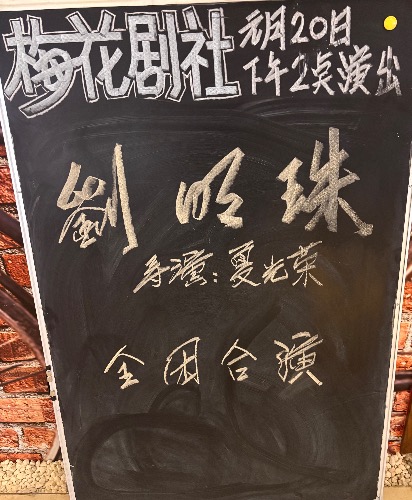 梅花剧社
元月20日
下午2点演出
劉明珠
导演：夏光荣
全团合演